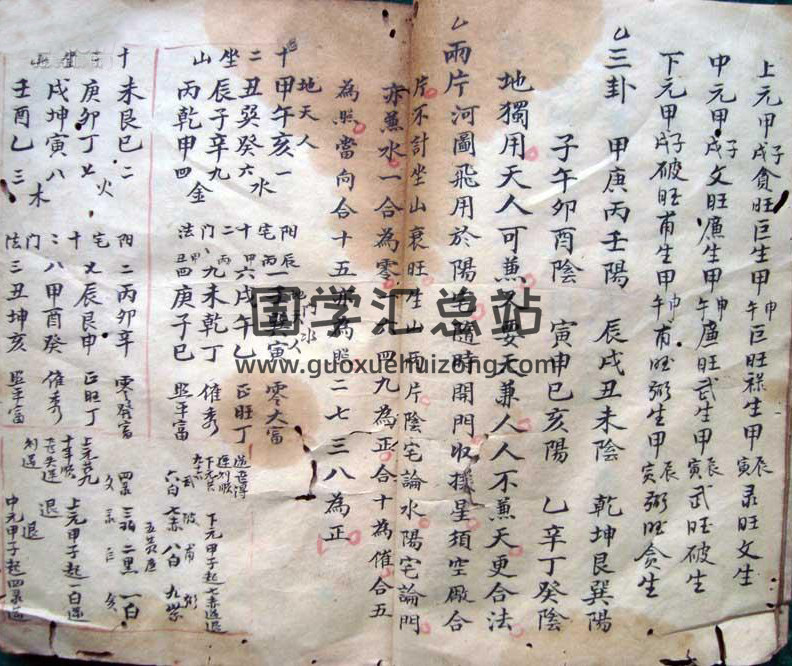 上元甲子戌貪旺巨生甲申午巨旺祿生甲辰寅彔旺文生
中元甲子戌文旺廉生甲申午廉旺武生甲辰寅武旺破生
下元甲子戌破旺甫生甲申午甫旺弼生甲辰寅弼旺貪生
三卦 甲庚丙壬陽 辰戌丑未陰 乾坤艮巽陽
子午卯酉陰 寅申巳亥陽 乙辛丁癸陰
地獨用天人可兼 又要天兼人人不兼天更合法
兩片河圖飛用於陽宅隨時開門收撥星須空厰合
片不計坐山衰旺生山兩片陰宅論水陽宅論門
亦兼水一合為零 四九為正合十為催合五
為照當向合十五亦為照二七三八為正
地天人
十甲午亥一
二丑巽癸六水
坐辰子辛九
山丙乾申四金
十未艮巳二
庚卯丁七火
戌坤寅八木
壬酉乙三
零大富
十六戌午乙 正旺丁
門九未乾丁 催秀
法四庚子巳 照平富
阳二丙卯辛 零發富
宅七辰艮申 正旺丁
八甲酉癸 催秀
法三丑坤亥 照平富
下元甲子起七赤逆退
六白七赤八白九紫
三碧二黑一白
上元甲子起一白
退
中元甲子起四
国学汇总站
www.guoxuehuizong.com